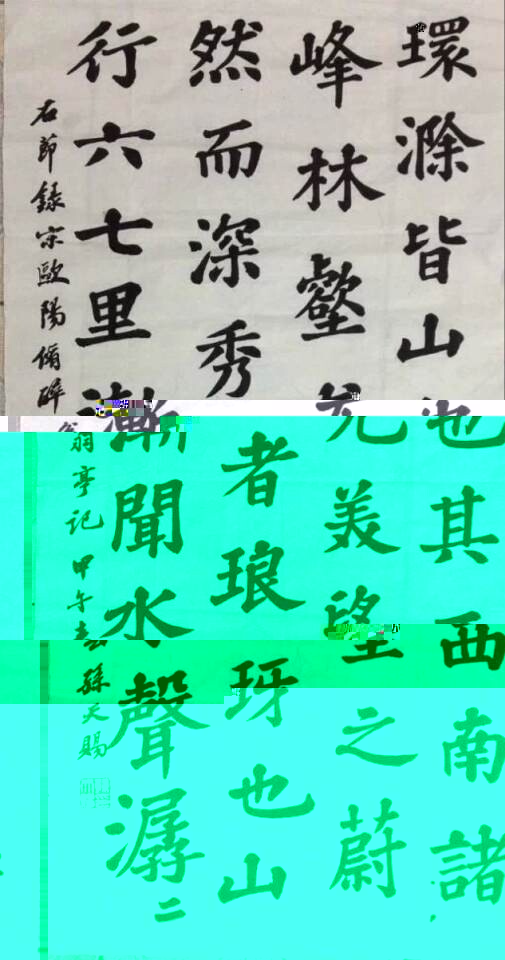 環滁皆山也其西南諸
峰林壑尤美望之蔚
然而深秀者琅玡也山
行六七里漸聞水聲潺二
右節錄宋歐陽脩醉翁亭記甲午春孫天賜